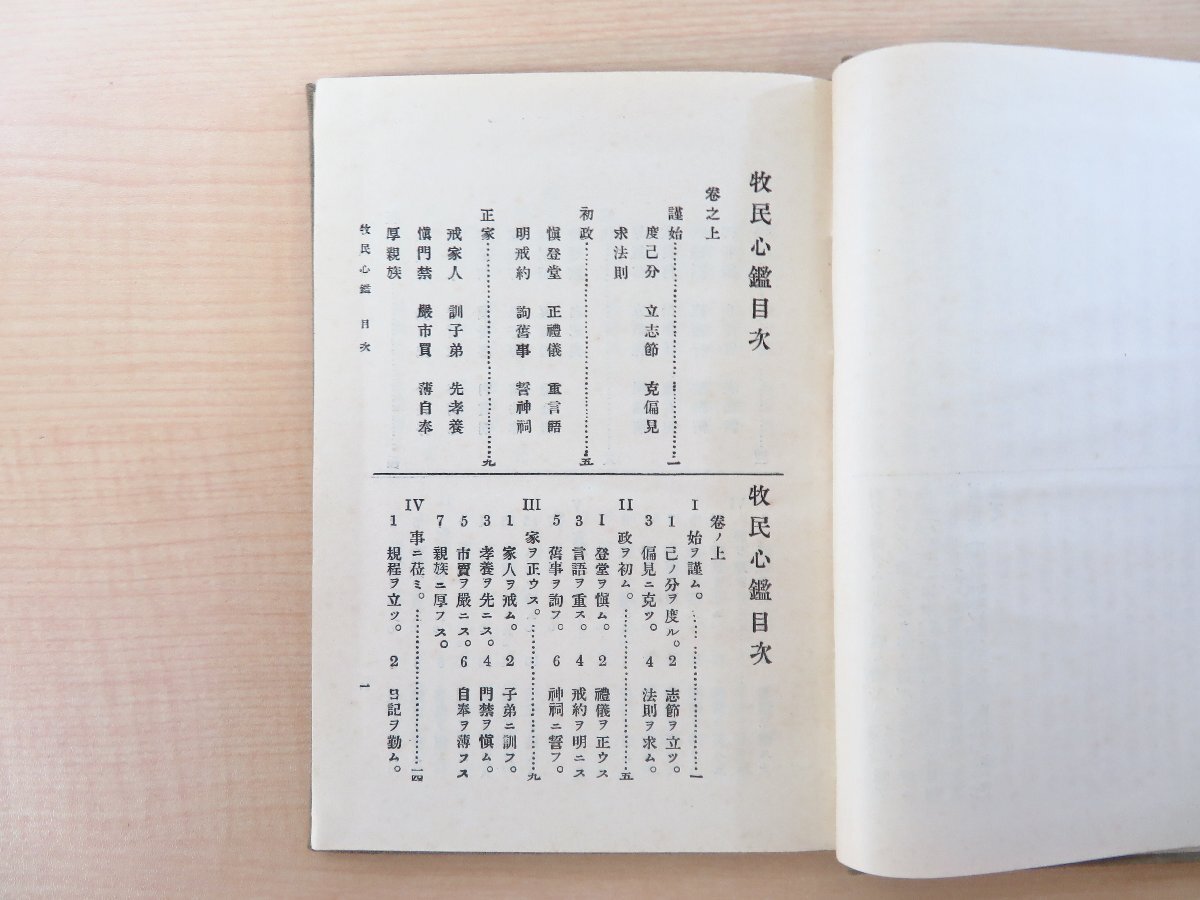 牧民心鑑目次
卷之上
謹始……………………一
度己分 立志節 克偏見
求法則
初政……………………五
愼登堂 正禮儀 重言語
明戒約 詢舊事 誓神祠
正家……………………九
戒家人 訓子弟 先孝養
愼門禁 嚴市買 薄自奉
厚親族
牧民心鑑 目次
牧民心鑑目次
卷ノ上
I 始ヲ謹ム。……………………一
1 己ノ分ヲ度ル。 2 志節ヲ立ツ。
3 偏見ニ克ツ。 4 法則ヲ求ム。
II 政ヲ初ム。……………………五
1 登堂ヲ愼ム。 2 禮儀ヲ正ウス
3 言語ヲ重ス。 4 戒約ヲ明ニス
5 舊事ヲ詢フ。 6 神祠ニ誓フ。
III 家ヲ正ウス。……………………九
1 家人ヲ戒ム。 2 子弟ニ訓フ。
3 孝養ヲ先ニス。 4 門禁ヲ愼ム。
5 市買ヲ嚴ニス。 6 自奉ヲ薄フス
7 親族ニ厚フス。
IV 事ニ莅ミ。……………………一四
1 規程ヲ立ツ。 2 日記ヲ勤ム。
一